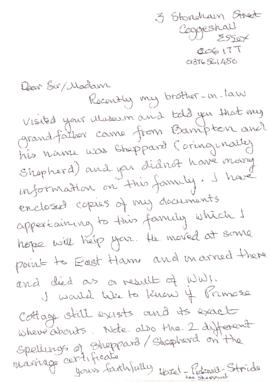 3 Stoneham Street
Coggeshall
Essex
CO6 1TT
Dear Sir/Madam
Recently my brother-in-law
visited your Museum and told you that my
grandfather came from Bampton and
his name was Sheppard (oringinally
Shepherd) and you did not have many
information on this family. I have
enclosed copies of my documents
appertaining to this family which I
hope will help you. He moved at some
point to East Ham and married there
and died as a result of WW1.
I would like to know if Primrose
Cottage still exists and its exact
whereabouts. Note also the 2 different
spellings of Sheppard/Shepherd on the
marriage certificate
Yours faithfully Hazel - Stride
nee Sheppard